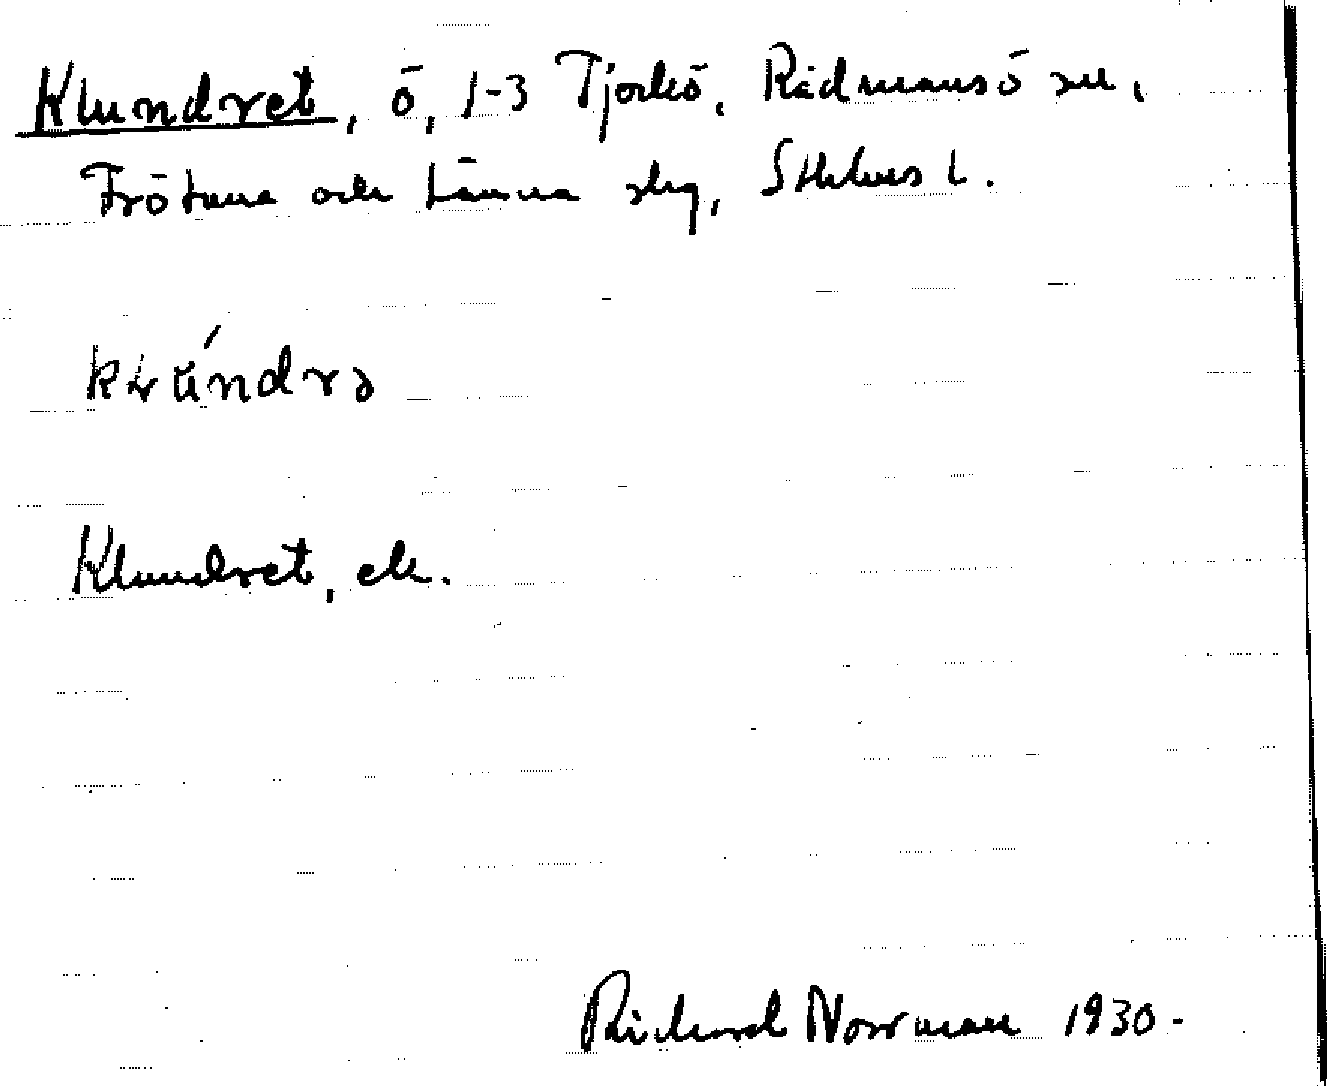 Klundret, ö, 1-3 Tjockö, Rådmansö sn,
Frötuna och Länna skg, Sthlms l.
Klundret, ek.
Richard Norrman 1930-